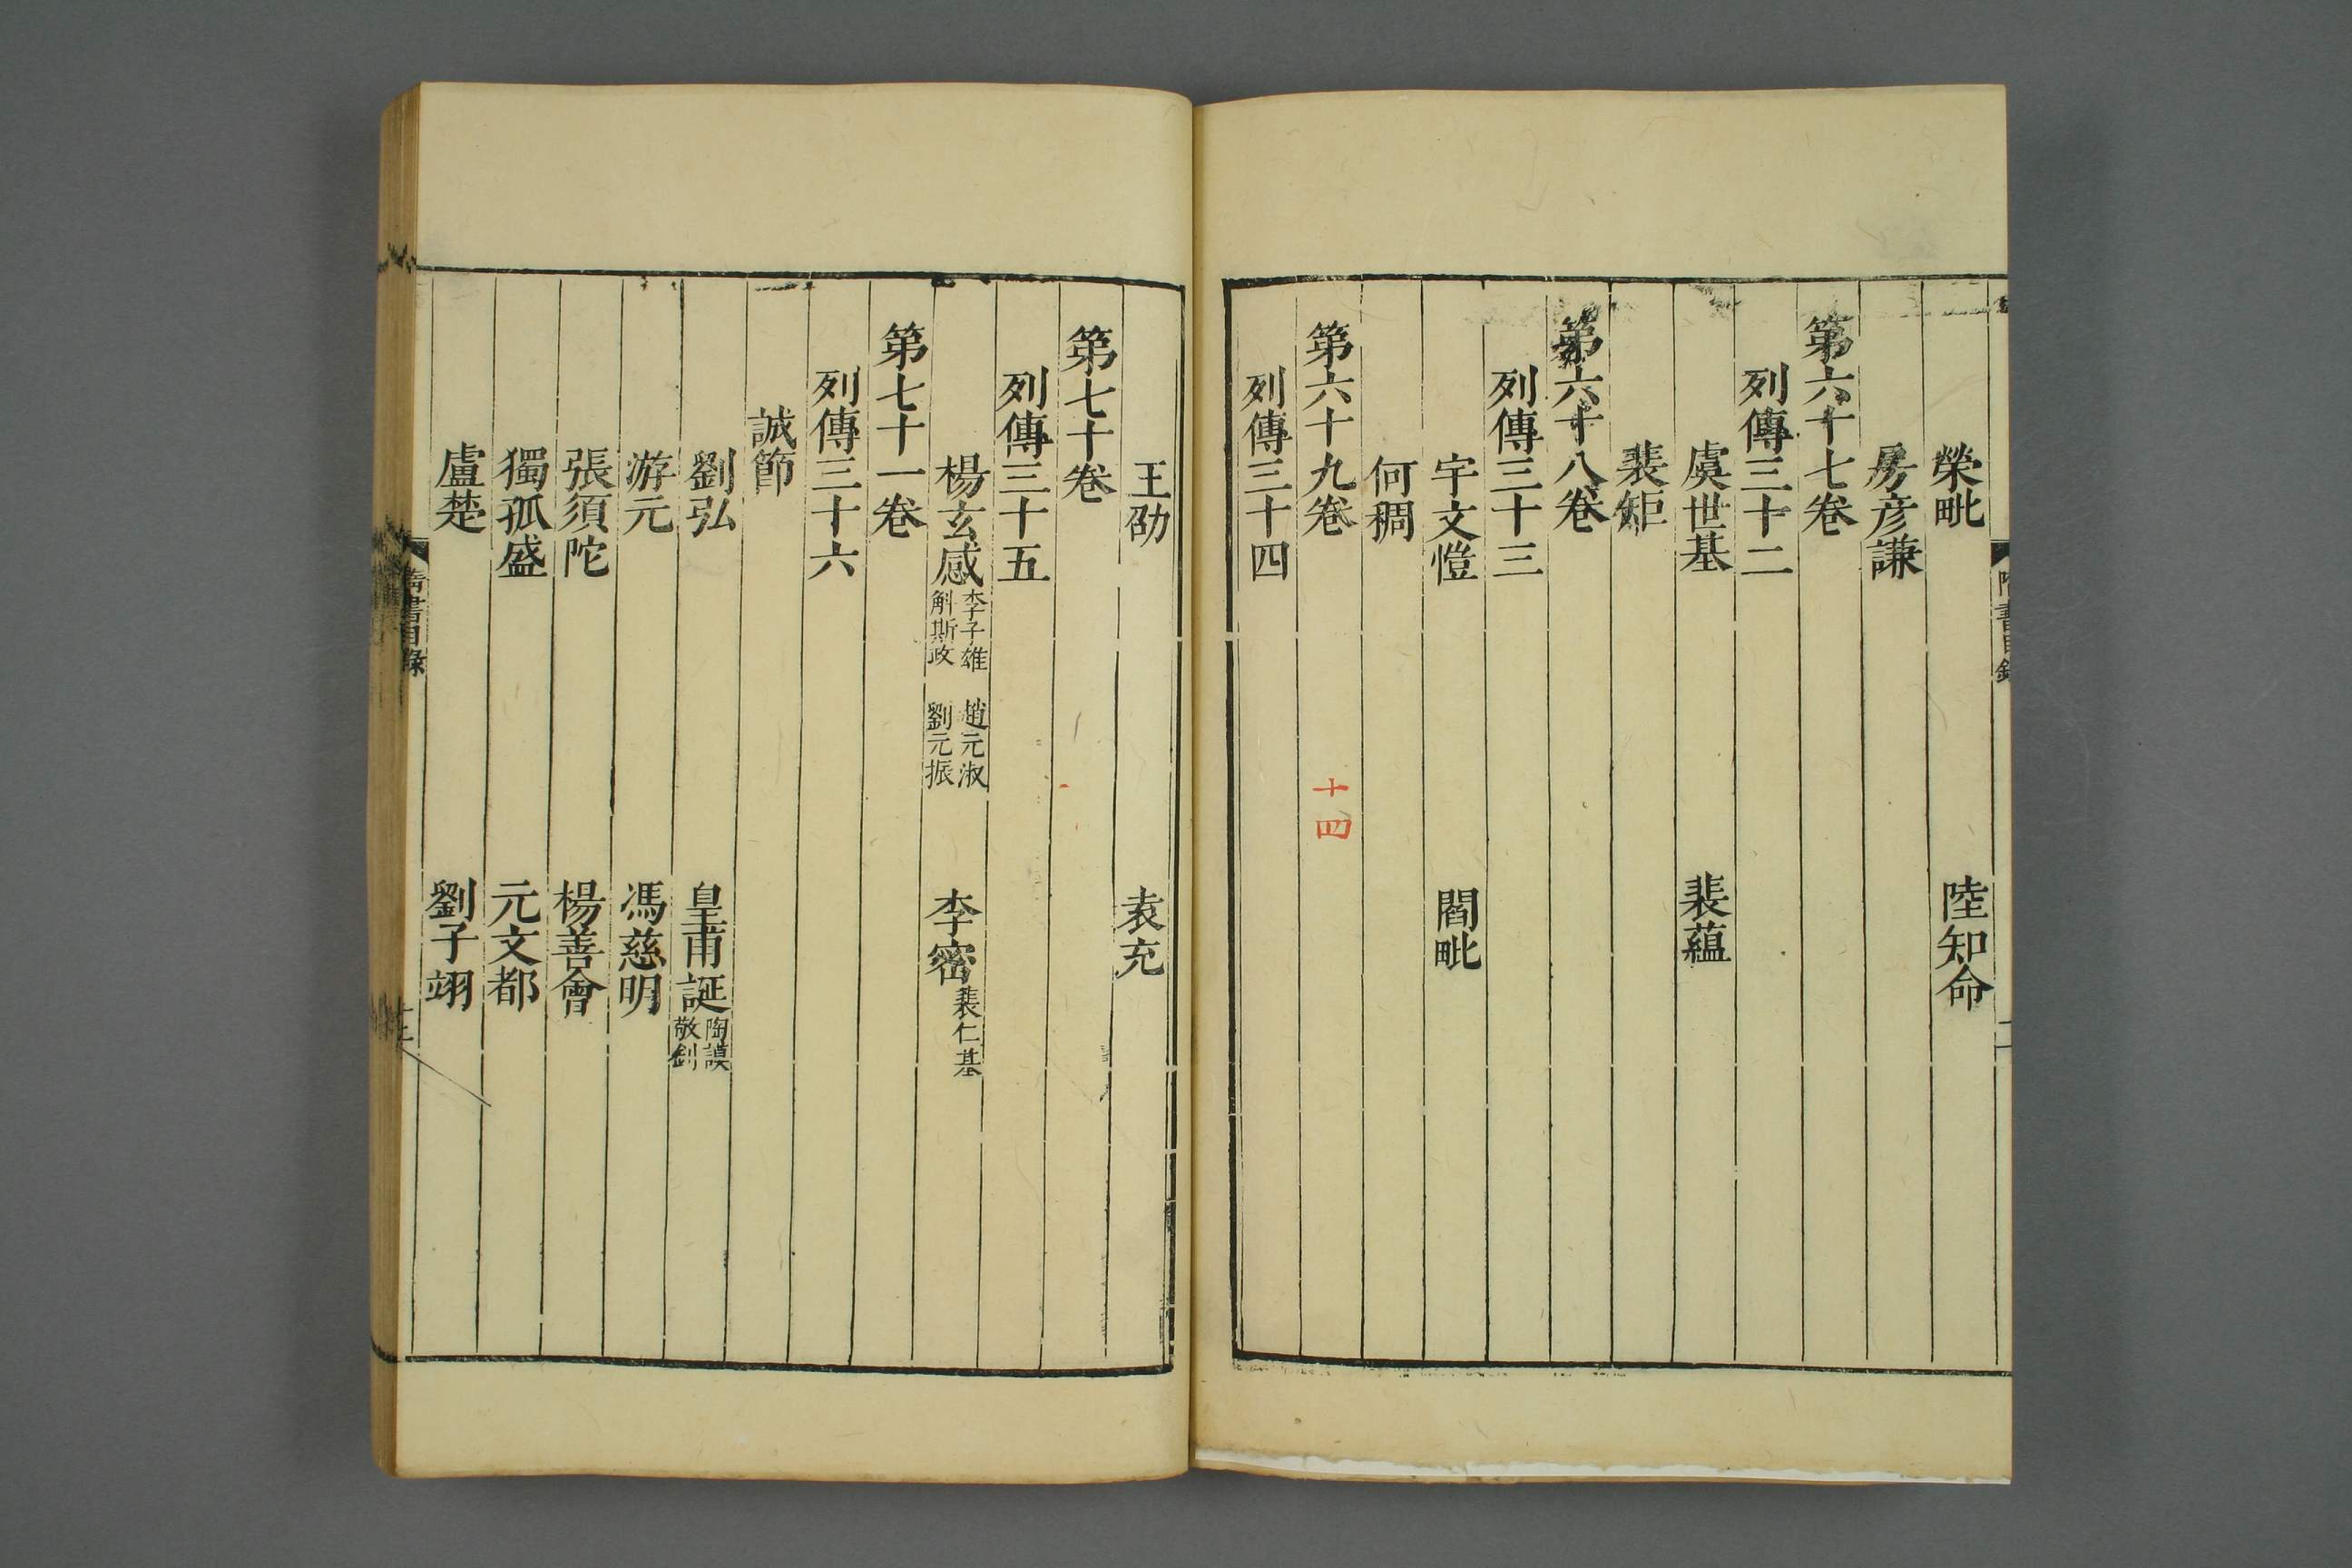 榮毗 陸知命
房彦謙
第六十七卷
列傳三十二
虞世基 裴藴
裴矩
第六十八卷
列傳三十三
宇文愷 閻毗
何稠
第六十九卷
十四
列傳三十四
王劭 袁充
第七十卷
列傳三十五
楊玄感 李子雄 趙元淑 斛斯政 劉元振 李密 裴仁基
第七十一卷
列傳三十六
誠節
劉弘 皇甫誕 陶謨 敬釗
游元 馮慈明
張須陀 楊善會
獨孤盛 元文都
盧楚 劉子翊
書目錄